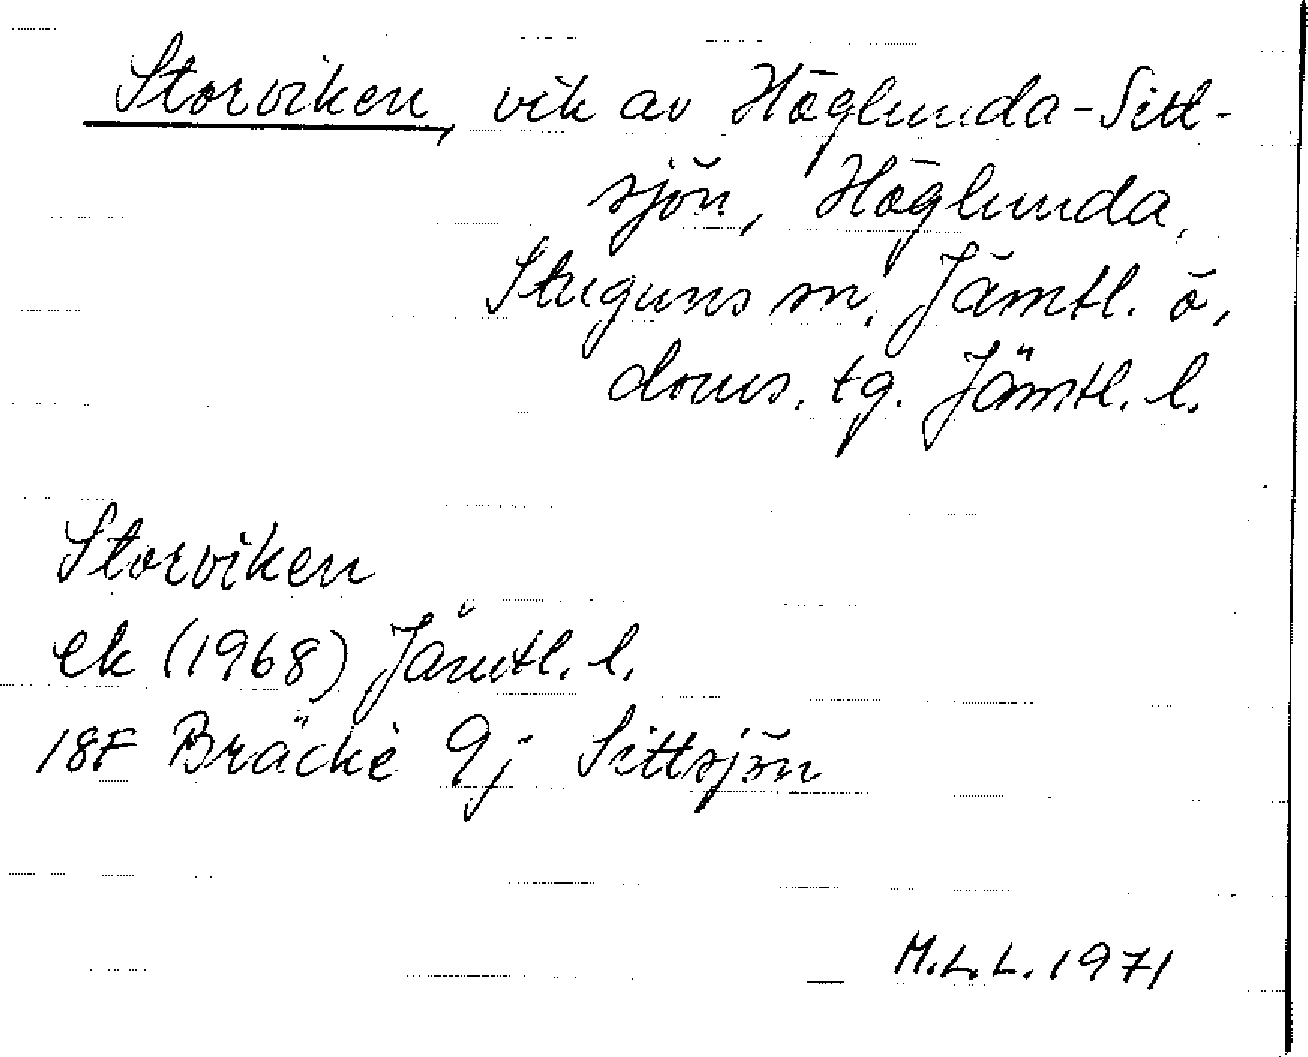 Storviken, vik av Höglunda-Sitt-
sjön, Höglunda,
Stuguns sn, Jämtl. ö,
doms. tg. Jämtl. l.
Storviken
ek (1968) Jämtl. l.
18F Bräcke 9j Sittsjön
M.L.L. 1971